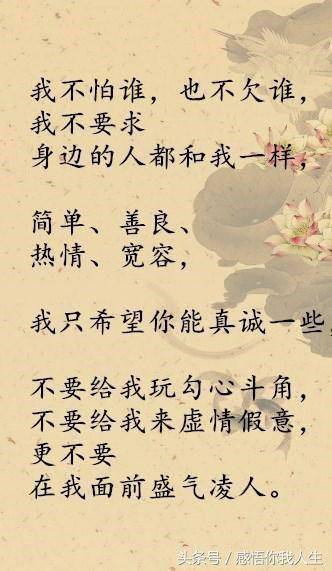 我不怕谁，也不欠谁，
我不要求
身边的人都和我一样，
简单、善良、
热情、宽容，
我只希望你能真诚一些，
不要给我玩勾心斗角，
不要给我来虚情假意，
更不要
在我面前盛气凌人。
头条号 / 感悟你我人生